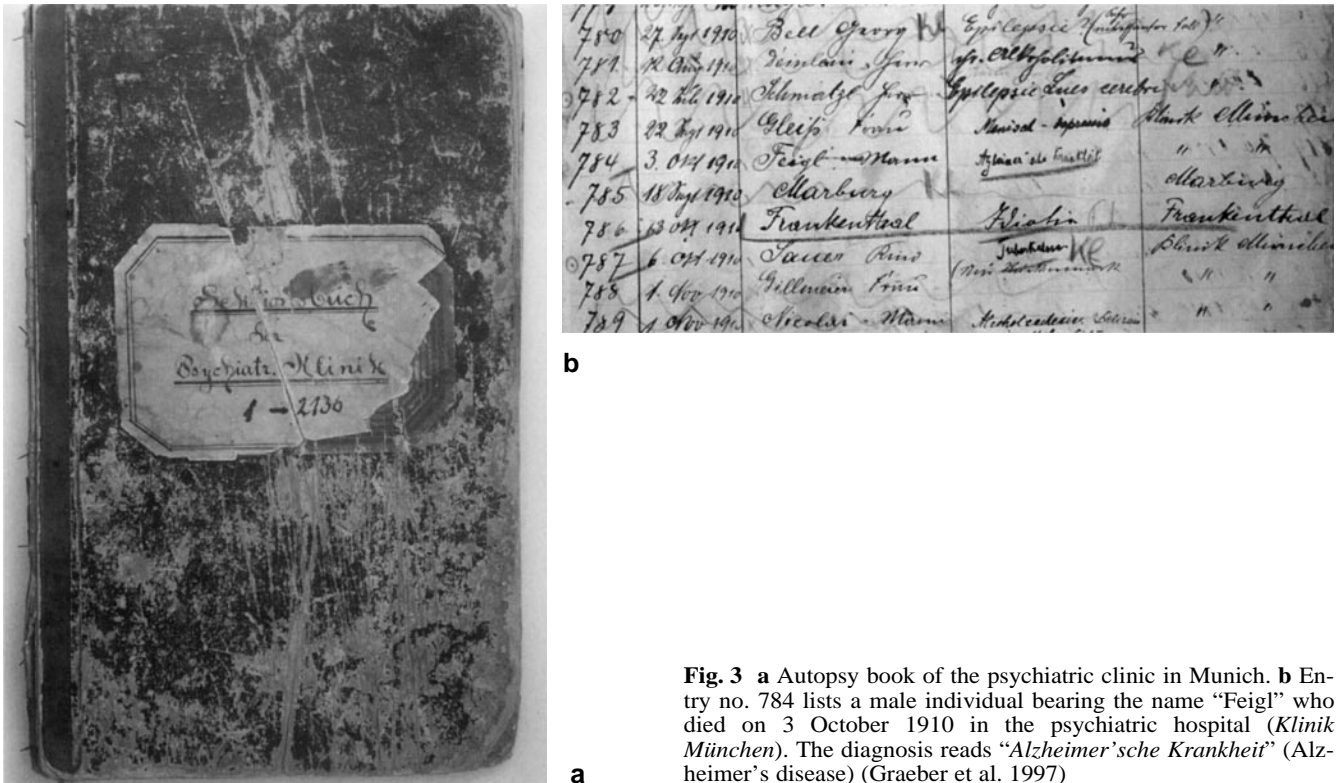 Sektions-Buch
der
Psychiatr. Klinik
1 – 2136
a
780 27 Sept 1910 Bell Georg Epilepsie ? "
781. 12 Aug 1910 Herr chr. Alkoholismus Ke "
782 - 22 1910 Schmatzl Herr Epilepsie Lues cerebri "
783 22 Sept 1910 Gleiß Frau Manisch - depressiv Klinik München
784 - 3. Okt 1910 Feigl - Mann Alzheimer'sche Krankheit " "
785 18 Sept 1910 Marburg Marburg
786 13 Okt 1910 Frankenthal Idiotin Frankenthal
787 6 Okt 1910 Sauer Ke Klinik München
788 1. Nov 1910 Frau " "
789 1 Nov 1910 Nicolai - Mann " "
b
Fig. 3 a Autopsy book of the psychiatric clinic in Munich. b En-
try no. 784 lists a male individual bearing the name “Feigl” who
died on 3 October 1910 in the psychiatric hospital (Klinik
München). The diagnosis reads “Alzheimer’sche Krankheit” (Alz-
heimer’s disease) (Graeber et al. 1997)